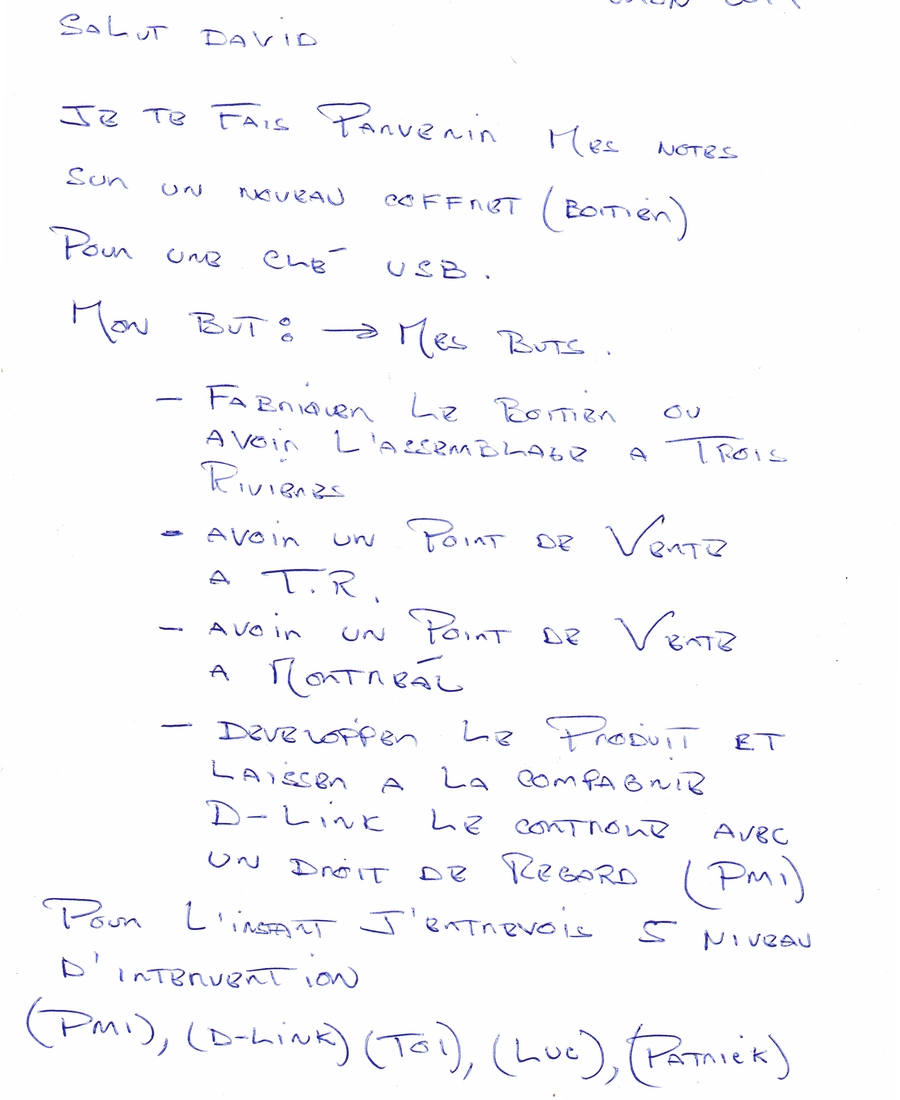 SALUT DAVID
JE TE FAIS PARVENIR MES NOTES
SUR UN NOUVEAU COFFRET (BOITIER)
POUR UNE CLÉ USB.
MON BUT: → MES BUTS.
- FABRIQUER LE BOITIER OU
AVOIR L'ASSEMBLAGE A TROIS
RIVIERES
- AVOIR UN POINT DE VENTE
A T.R.
- AVOIR UN POINT DE VENTE
A MONTRÉAL
- DEVELOPPER LE PRODUIT ET
LAISSER A LA COMPAGNIE
D-LINK LE CONTROLE AVEC
UN DROIT DE REGARD (PMI)
POUR L'INSTANT J'ENTREVOIS 5 NIVEAU
D'INTERVENTION
(PMI), (D-LINK) (TOI), (LUC), (PATRICK)